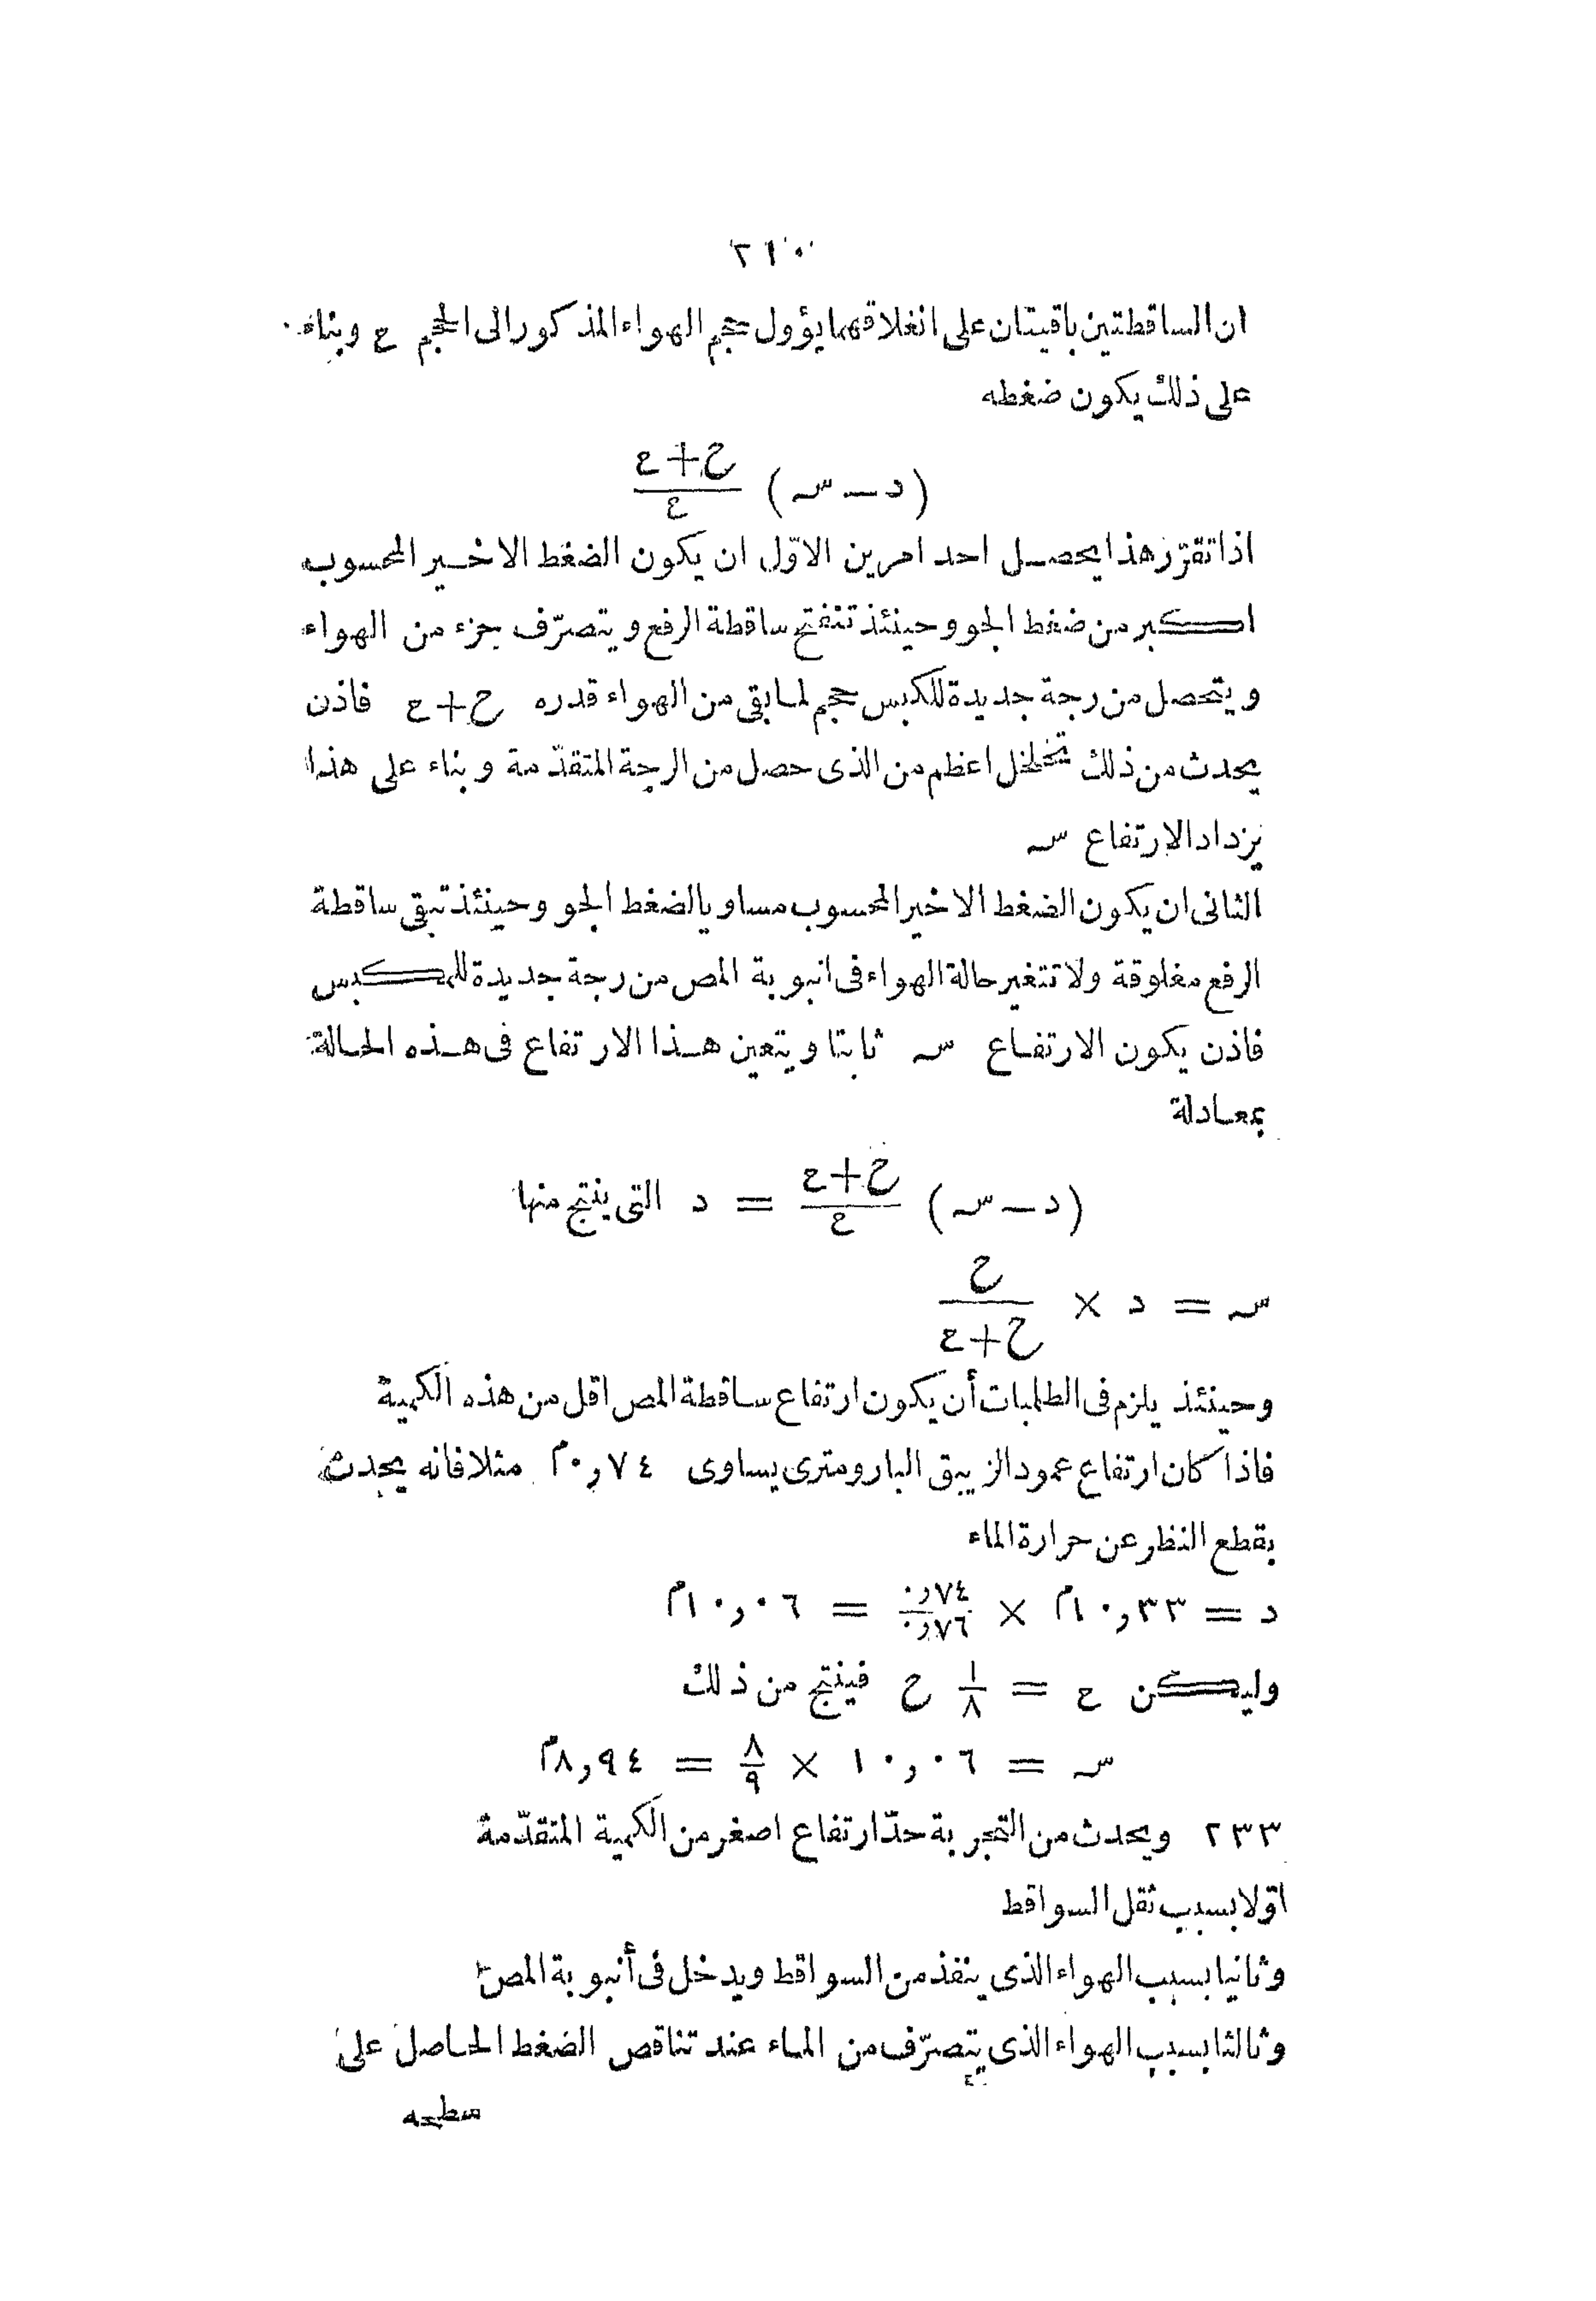 ٢١٠
ان الساقطتين باقيتان على انغلاقهما يؤول حجم الهواء المذكور الى الحجم ع وبناء
على ذلك يكون ضغطه
(د — سه) ح+ع/ع
اذا تقرّر هذا يحصل احد امرين الاوّل ان يكون الضغط الاخير المحسوب
اكبر من ضغط الجو وحينئذ تنفتح ساقطة الرفع ويتصرّف جزء من الهواء
ويتحصل من رجة جديدة للكبس حجم لما بقى من الهواء قدره ح+ع فاذن
يحدث من ذلك تخلخل اعظم من الذى حصل من الرجة المتقدّمة وبناء على هذا
يزداد الارتفاع سه
الثانى ان يكون الضغط الاخير المحسوب مساويا لضغط الجو وحينئذ تبقى ساقطة
الرفع مغلوقة ولا تتغير حالة الهواء فى انبوبة المص من رجة جديدة للمكبس
فاذن يكون الارتفاع سه ثابتا ويتعين هذا الارتفاع فى هذه الحالة
بمعادلة
(د — سه) ح+ع/ع = د التى ينتج منها
سه = د × ح/ح+ع
وحينئذ يلزم فى الطلمبات أن يكون ارتفاع ساقطة المص اقل من هذه الكمية
فاذا كان ارتفاع عمود الزيبق البارومترى يساوى ٠,٧٤م مثلا فانه يحدث
بقطع النظر عن حرارة الماء
د = ١٠,٣٣م × ٠,٧٤/٠,٧٦ = ١٠,٠٦م
وليكن ع = ١/٨ ح فينتج من ذلك
سه = ١٠,٠٦ × ٨/٩ = ٨,٩٤م
٢٣٣ ويحدث من التجربة حدّ ارتفاع اصغر من الكمية المتقدّمة
اوّلا بسبب ثقل السواقط
وثانيا بسبب الهواء الذى ينفذ من السواقط ويدخل فى أنبوبة المص
وثالثا بسبب الهواء الذى يتصرّف من الماء عند تناقص الضغط الحاصل على
سطحه